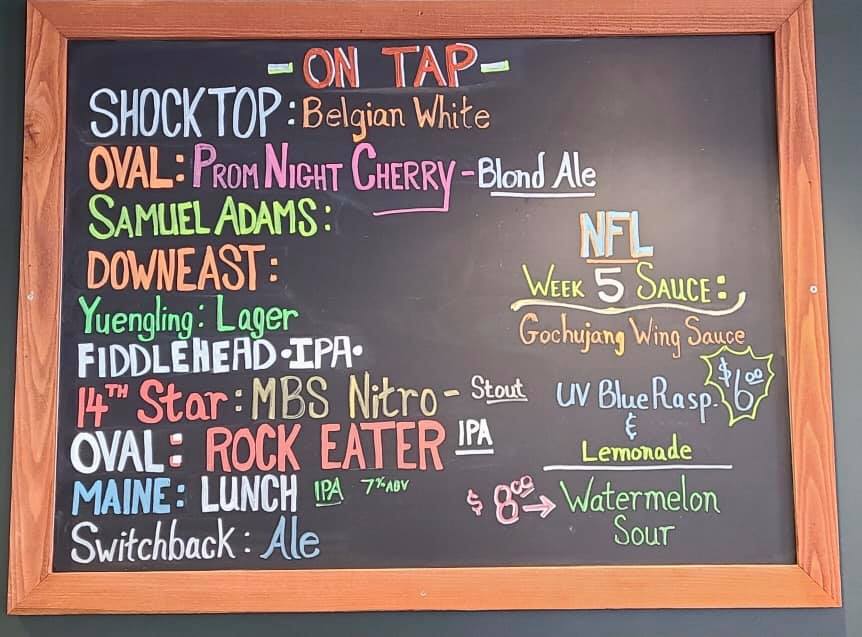 - ON TAP -
SHOCKTOP: Belgian White
OVAL: PROM NIGHT CHERRY - Blond Ale
SAMUEL ADAMS:
DOWNEAST:
Yuengling: Lager
FIDDLEHEAD • IPA •
14TH Star: MBS Nitro - Stout
OVAL: ROCK EATER IPA
MAINE: LUNCH IPA 7% ABV
Switchback: Ale
NFL
WEEK 5 SAUCE:
Gochujang Wing Sauce
UV Blue Rasp. $6.00
&
Lemonade
$8.00 → Watermelon
Sour